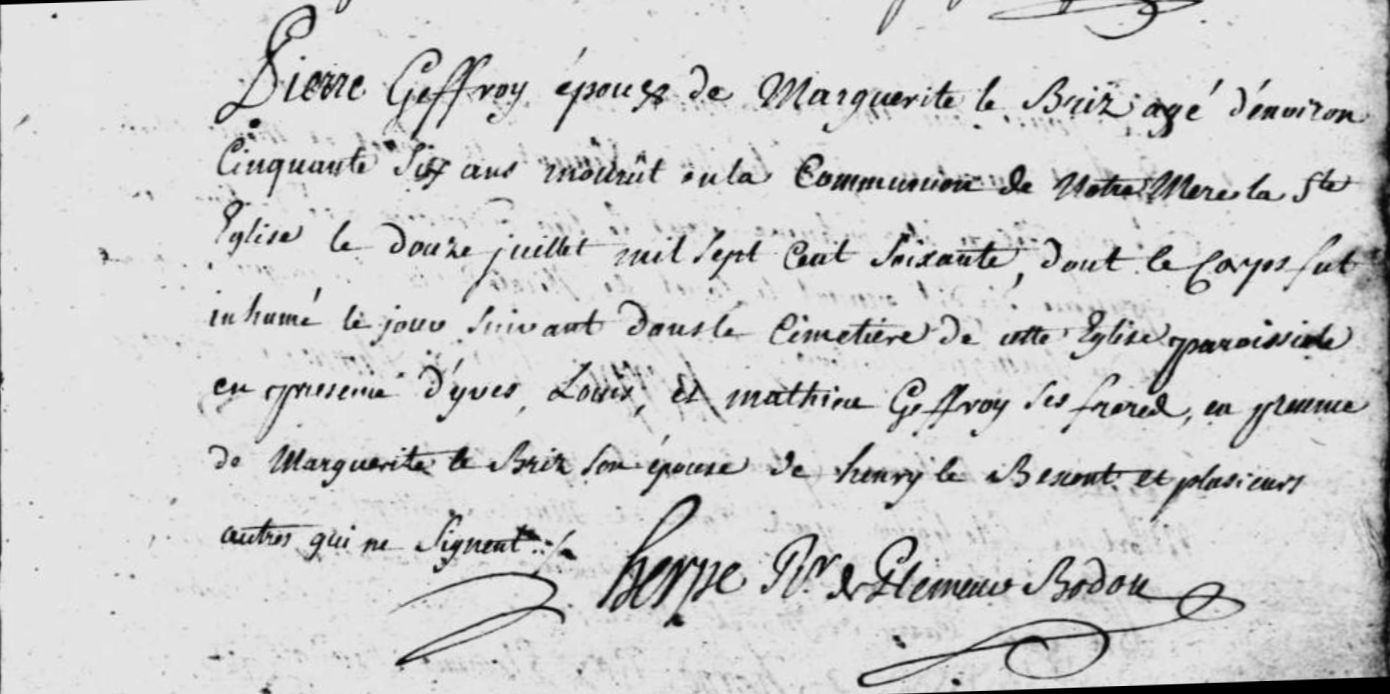 Pierre Geffroy époux de Marguerite le Briz agé d'énviron
Cinquante Six ans mourût en la Communion de Notre Mere la Ste
Eglise le douze juillet mil Sept Cent Soixante, dont le Corps fut
inhumé le jour Suivant dans le Cimetiere de cette Eglise paroissiale
en presence d'yves, Louis, et mathieu Geffroy Ses freres, en presence
de Marguerite le Briz Son épouse de henry le Bescont et plusieurs
autres qui ne Signent
herpe Rr. de Plemeur Bodou